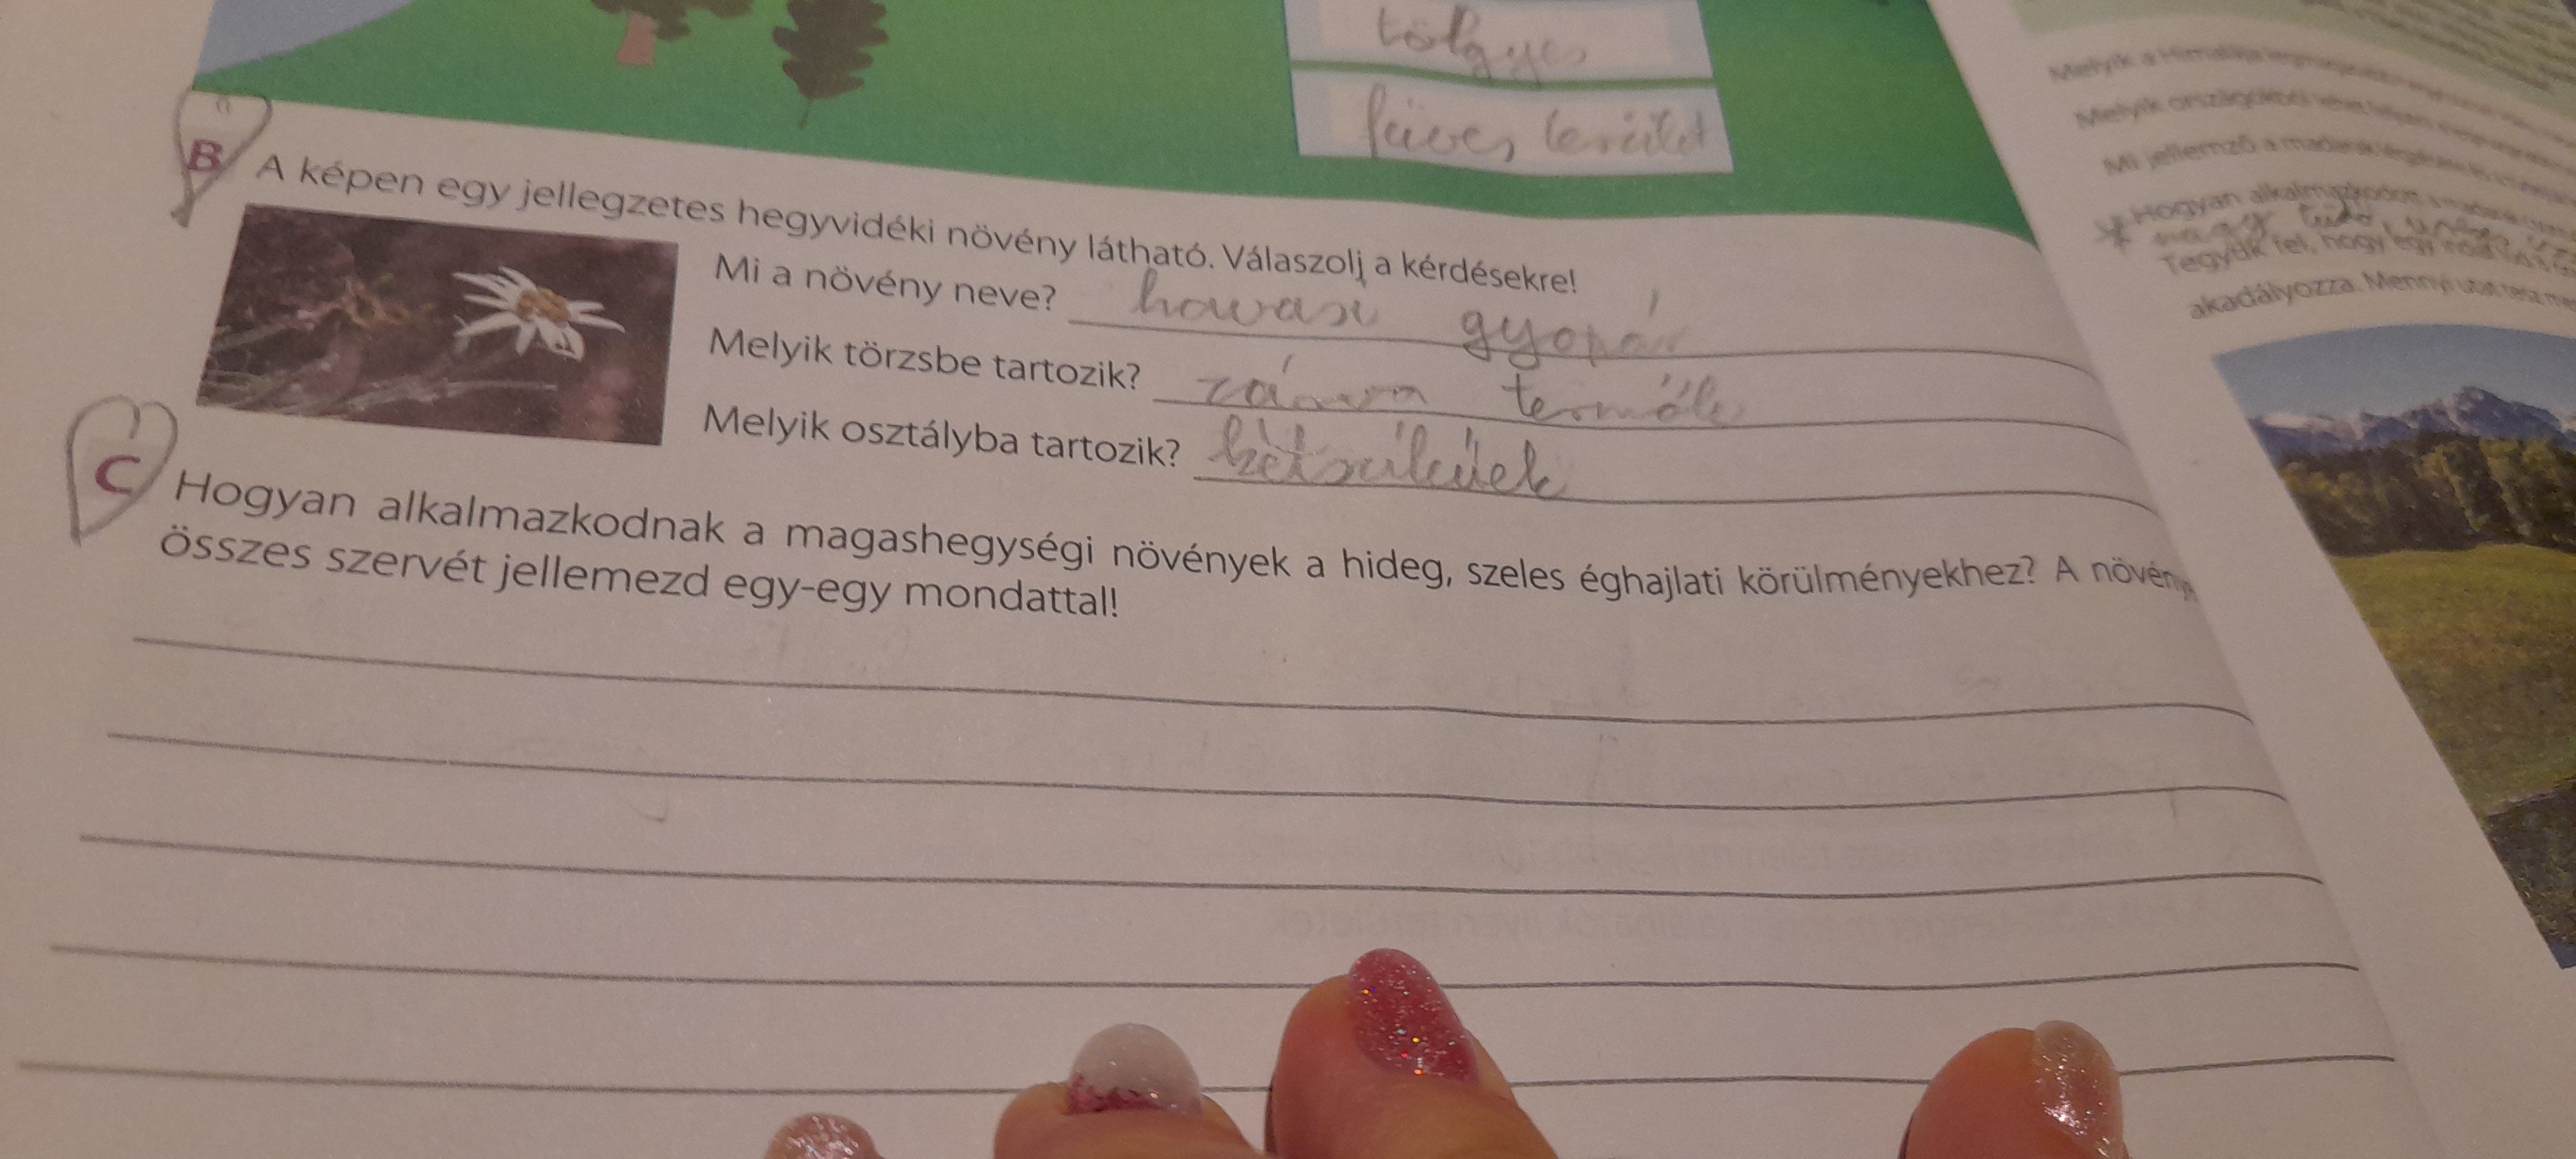 tölgyes
füves terület
B A képen egy jellegzetes hegyvidéki növény látható. Válaszolj a kérdésekre!
Mi a növény neve? havasi gyopár
Melyik törzsbe tartozik? zárva termők
Melyik osztályba tartozik? kétszikűek
C Hogyan alkalmazkodnak a magashegységi növények a hideg, szeles éghajlati körülményekhez? A növény
összes szervét jellemezd egy-egy mondattal!
Melyik a Himalája
Melyik országokból
Mi jellemző a madarak
Hogyan alkalmazkodott
nagy tüdő
Tegyük fel, hogy egy
akadályozza. Mennyi utat tesz